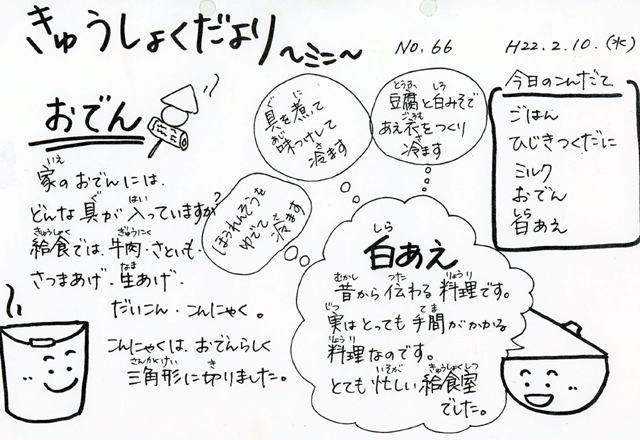 きゅうしょくだより ～ミニ～
No.66
H22.2.10.(水)
おでん
家のおでんには、
どんな具が入っていますか?
給食では、牛肉・さといも・
さつまあげ・生あげ・
だいこん・こんにゃく。
こんにゃくは、おでんらしく
三角形に切りました。
具を煮て
味つけして
冷ます
豆腐と白みそで
あえ衣をつくり
冷ます
ほうれんそうを
ゆでて
冷ます
白あえ
昔から伝わる料理です。
実はとっても手間がかかる
料理なのです。
とても忙しい給食室
でした。
今日のこんだて
ごはん
ひじきつくだに
ミルク
おでん
白あえ